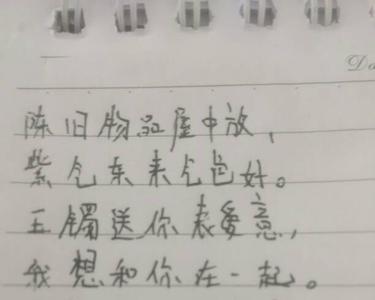 Da
陈旧物品屋中放,
紫气东来气色好。
玉镯送你表爱意,
我想和你在一起。